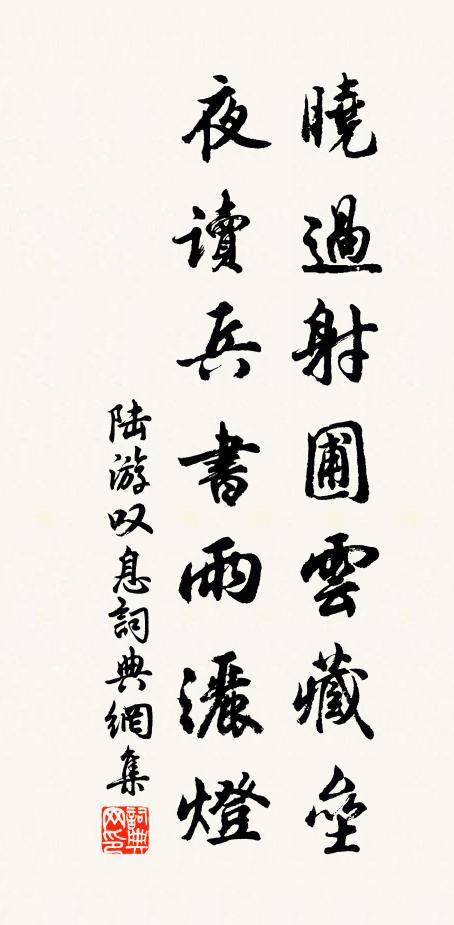 曉過射圃雲藏壘
夜读兵書雨灑燈
陆游叹息詞典網集
詞典网印